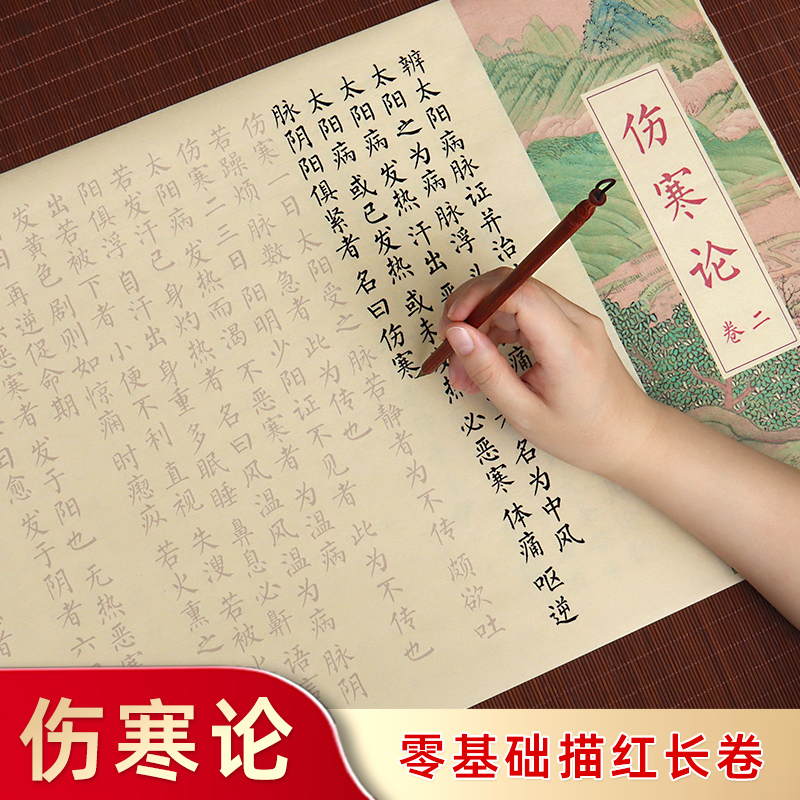 伤寒论
卷二
辨太阳病脉证并治
太阳之为病 脉浮
太阳病 发热 汗出 名为中风
太阳病 或已发热 或未 热 必恶寒 体痛 呕逆
脉阴阳俱紧者 名曰伤寒
伤寒一日 太阳受之 脉若静者 为不传 颇欲吐
若躁烦 脉数急者 此为传也
伤寒二三日 阳明少阳证不见者 此为不传也
太阳病 发热而渴 不恶寒者 为温病
若发汗已 身灼热者 名曰风温 风温为病 脉阴
阳俱浮 自汗出 身重 多眠睡 鼻息必鼾 语言
出 若被下者 小便不利 直视 失溲 若被火
发黄色 剧则如惊痫 时瘛疭 若火熏之
再逆促命期
恶寒者 发于阳也 无热恶寒
曰愈 发于阴者 六
伤寒论
零基础描红长卷